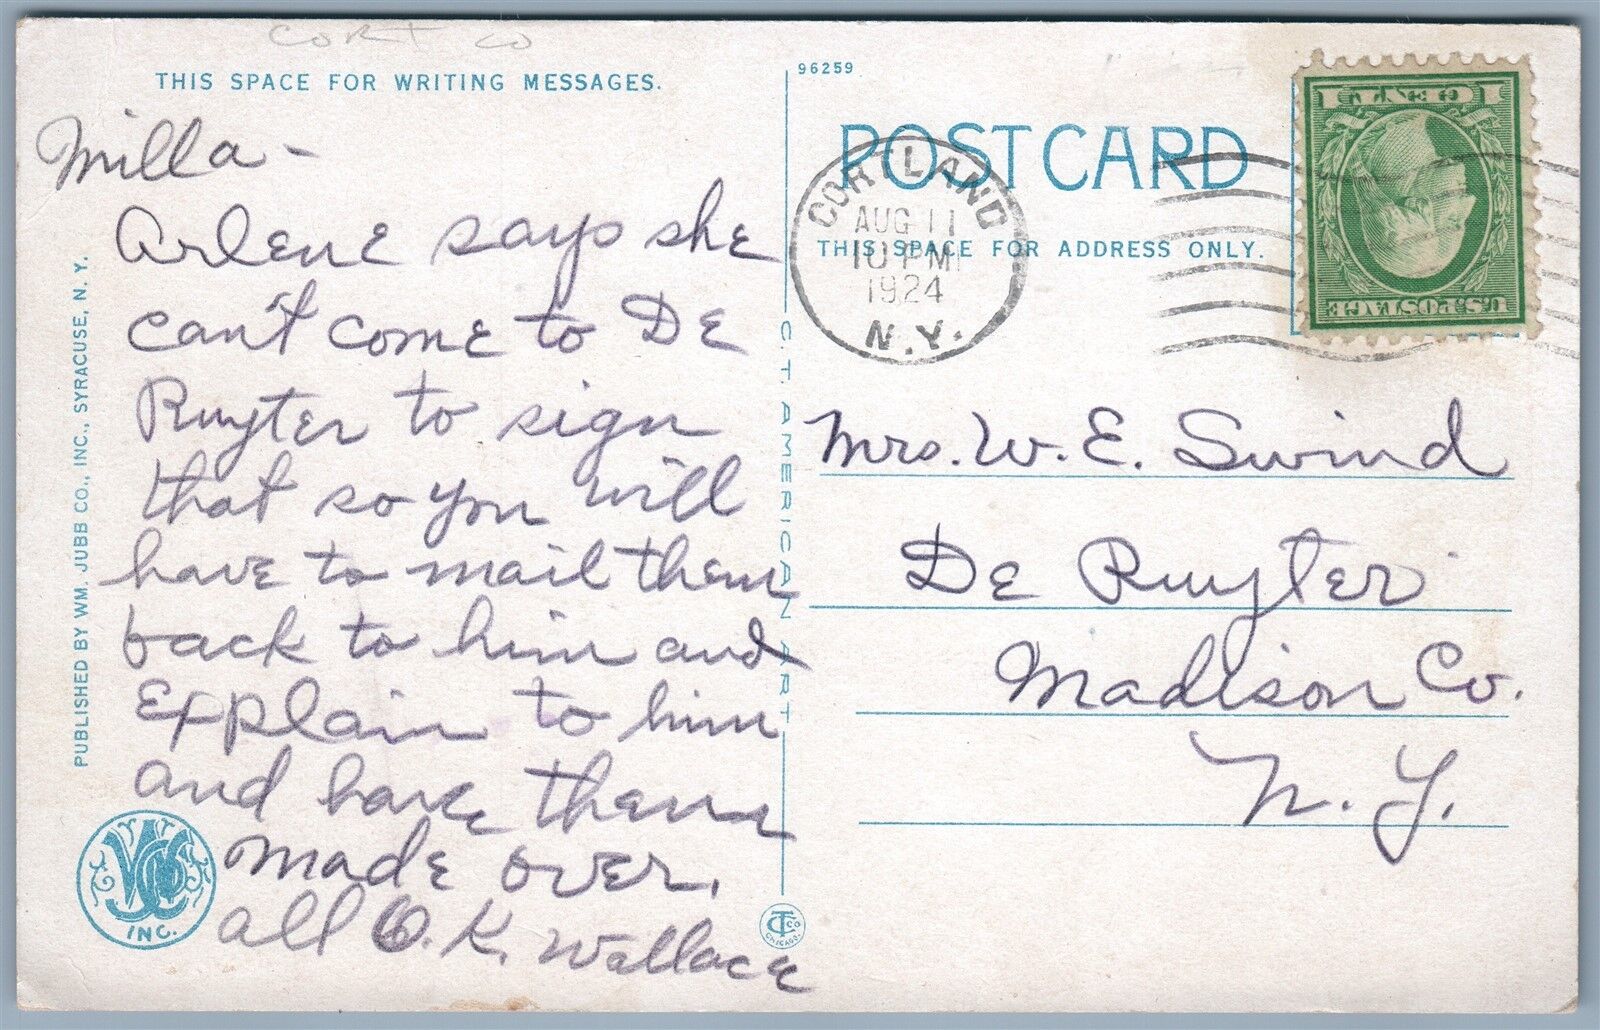 Cort Co
THIS SPACE FOR WRITING MESSAGES.
Milla -
Arlene says she
can't come to De
Ruyter to sign
that so you will
have to mail them
back to him and
explain to him
and have them
made over.
all O.K. Wallace
PUBLISHED BY WM. JUBB CO., INC., SYRACUSE, N. Y.
INC.
C. T. AMERICAN ART
CT CO
CHICAGO.
96259
POST CARD
THIS SPACE FOR ADDRESS ONLY.
CORTLAND
AUG 11
10 PM
1924
N.Y.
U.S. POSTAGE
1 CENT 1
Mrs. W. E. Swind
De Ruyter
Madison Co.
N. Y.